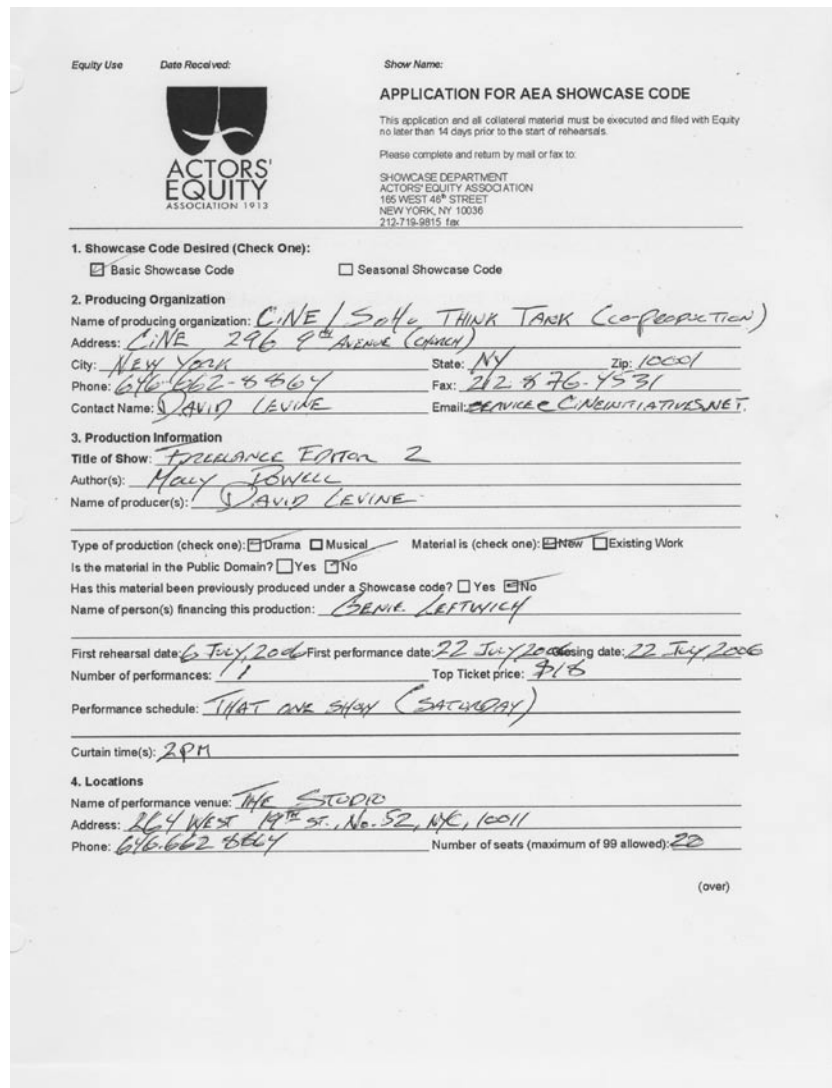 Equity Use Date Received: Show Name:
ACTORS'
EQUITY
ASSOCIATION 1913
APPLICATION FOR AEA SHOWCASE CODE
This application and all collateral material must be executed and filed with Equity
no later than 14 days prior to the start of rehearsals.
Please complete and return by mail or fax to:
SHOWCASE DEPARTMENT
ACTORS' EQUITY ASSOCIATION
165 WEST 46th STREET
NEW YORK, NY 10036
212-719-9815 fax
1. Showcase Code Desired (Check One):
Basic Showcase Code Seasonal Showcase Code
2. Producing Organization
Name of producing organization: CiNE / SOHO THINK TANK (CO-PRODUCTION)
Address: CiNE 296 9th AVENUE (CHURCH)
City: NEW YORK State: NY Zip: 10001
Phone: 646-662-8864 Fax: 212 876-4531
Contact Name: DAVID LEVINE Email: SERVICE@CINEINITIATIVES.NET.
3. Production Information
Title of Show: FREELANCE EDITOR 2
Author(s): MOLLY POWELL
Name of producer(s): DAVID LEVINE
Type of production (check one): Drama Musical Material is (check one): New Existing Work
Is the material in the Public Domain? Yes No
Has this material been previously produced under a Showcase code? Yes No
Name of person(s) financing this production: GENIE LEFTWICH
First rehearsal date: 6 JULY, 2006 First performance date: 22 JULY 2006 Closing date: 22 JULY 2006
Number of performances: 1 Top Ticket price: $18
Performance schedule: THAT ONE SHOW (SATURDAY)
Curtain time(s): 2PM
4. Locations
Name of performance venue: THE STUDIO
Address: 264 WEST 19TH ST., No. 52, NYC, 10011
Phone: 646.662 8864 Number of seats (maximum of 99 allowed):
(over)